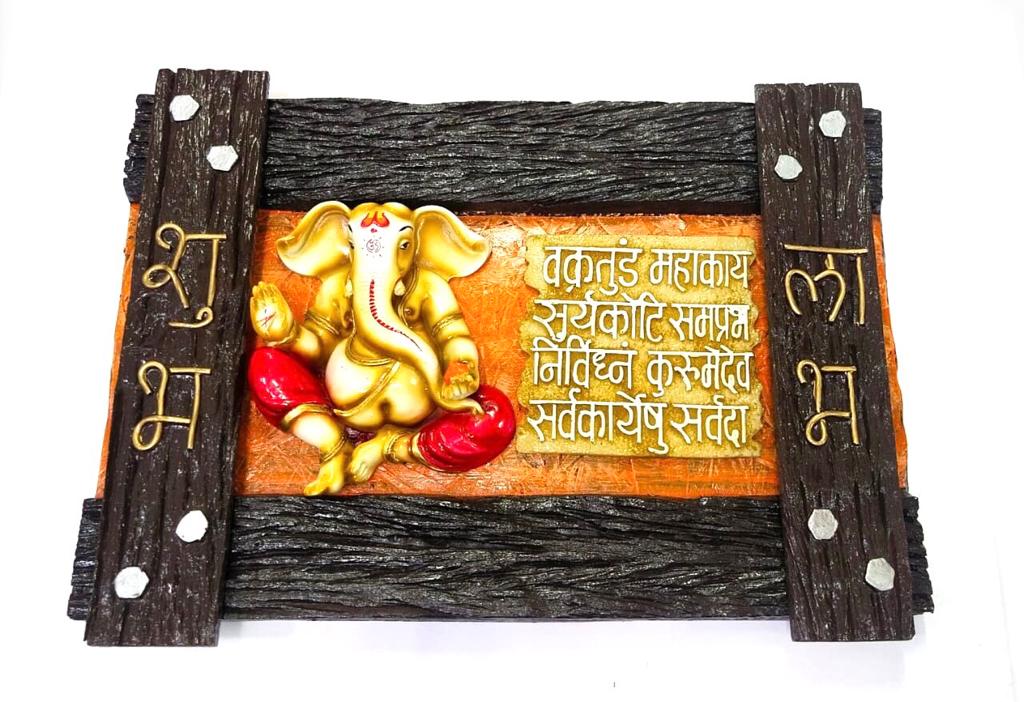 शुभ
वक्रतुडं महाकाय
सुर्यकोटि समप्रभ
निर्विध्नं कुरुमेदेव
सर्वकार्येषु सर्वदा
लाभ